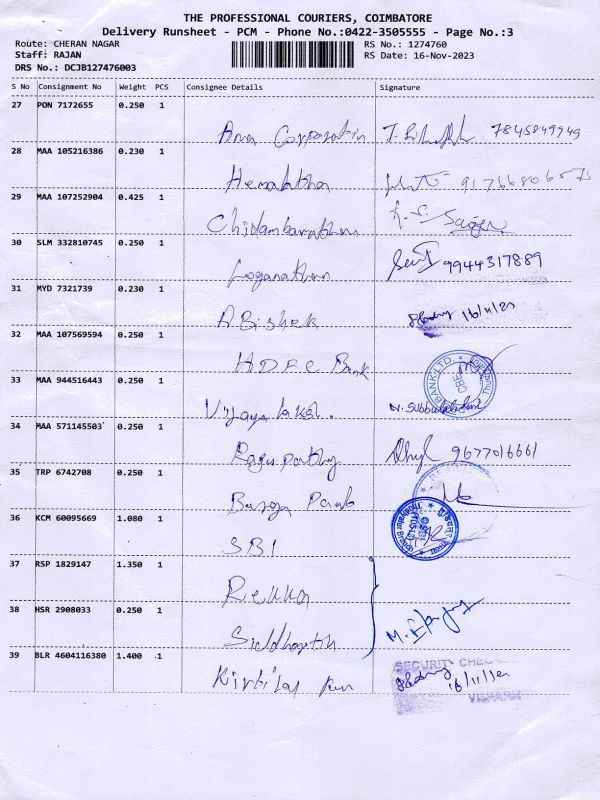 THE PROFESSIONAL COURIERS, COIMBATORE
Delivery Runsheet - PCM - Phone No.:0422-3505555 - Page No.:3
Route: CHERAN NAGAR RS No.: 1274760
Staff: RAJAN RS Date: 16-Nov-2023
DRS No.: DCJB127476003
S No Consignment No Weight PCS Consignee Details Signature
27 PON 7172655 0.250 1
7845849949
28 MAA 105216386 0.230 1
Hemalatha
29 MAA 107252904 0.425 1
Chidambarathanu
30 SLM 332810745 0.250 1
Loganathan 9944317889
31 MYD 7321739 0.230 1
A.Bishek 16/11/23
32 MAA 107569594 0.250 1
HDFC Bank BANK LTD. CBE
33 MAA 944516443 0.250 1
N. Subbulakshmi
34 MAA 571145503 0.250 1
Ragupathy 9677016661
35 TRP 6742708 0.250 1
Baroda
36 KCM 60095669 1.080 1
SBI
37 RSP 1829147 1.350 1
Rekka
38 HSR 2908033 0.250 1
Siddharth
39 BLR 4604116380 1.400 1
SECURITY CHECK
Kirtilal 16/11/23